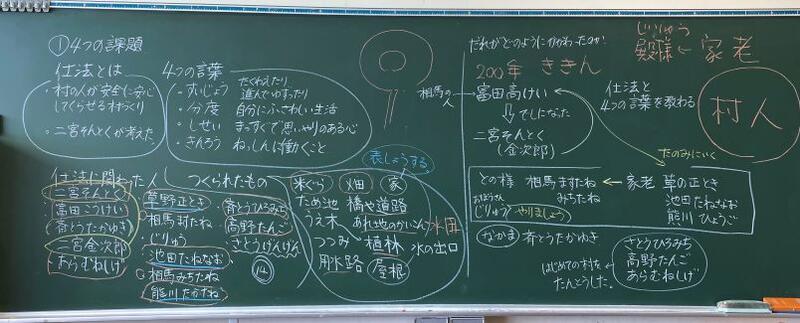 ①4つの課題
仕法とは
・村の人が安全に安心
してくらせる村づくり
・二宮そんとくが考えた。
4つの言葉
・すいじょう
たくわえたり
進んでゆずったり
・分度 自分にふさわしい生活
・しせい まっすぐで思いやりのある心
・きんろう ねっしんに働くこと
仕法に関わった人
二宮そんとく
富田こうけい
斉とうたかゆき
二宮金次郎
あらむねしげ
草野正とき
相馬ますたね
じりゅう
池田たねなお
相馬みちたね
熊川たかたね
斉とうひろみち
高野たんご
さとうけんけん
⑭
つくられたもの
表しょうする
米ぐら
畑
家
ため池
橋や道路
うえ木
あれ地のかいこん
水田
つつみ
植林
水の出口
用水路
屋根
だれがどのようにかかわったのか?
200年 ききん
相馬の人
富田高けい
でしになった
二宮そんとく
(金次郎)
じじゅう
殿様←家老
仕法と
4つの言葉を教わる
村人
たのみにいく
との様 相馬ますたね
みちたね
家老 草の正とき
池田たねなお
熊川 ひょうご
おぼうさん
じりゅう
やりましょう
なかま 斉とうたかゆき
さとうひろみち
高野たんご
あらむねしげ
はじめての村を
たんとうした。